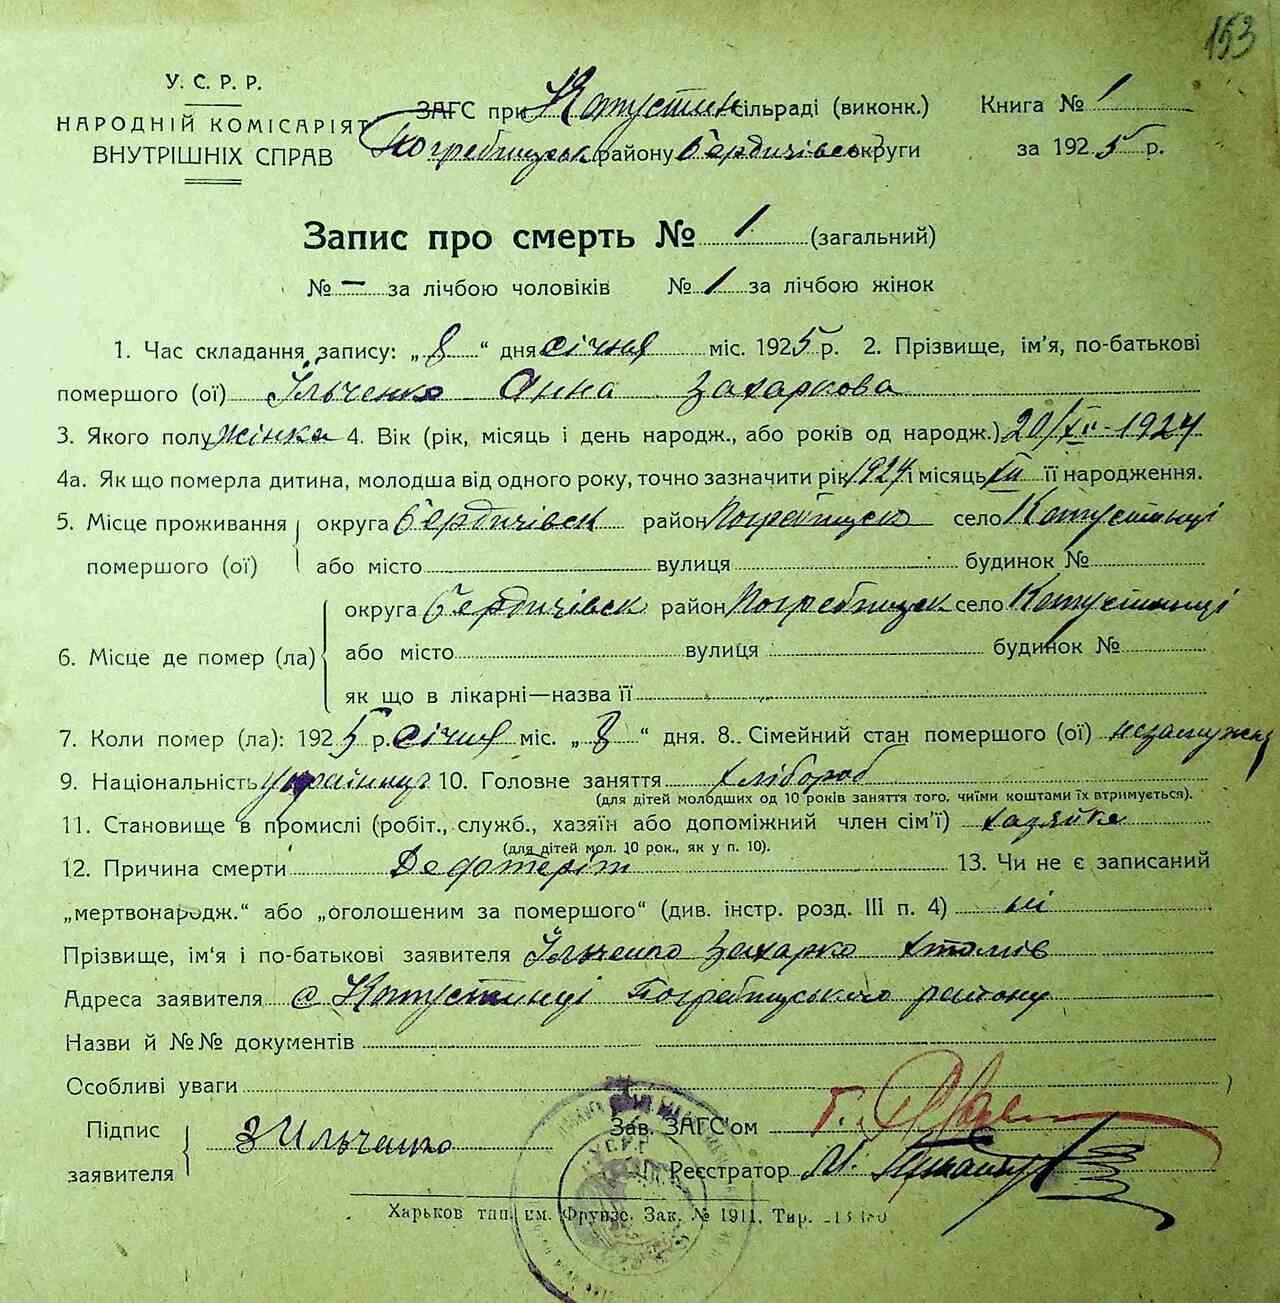 153
У. С. Р. Р.
НАРОДНІЙ КОМІСАРІЯТ
ВНУТРІШНІХ СПРАВ
ЗАГС при Капустин сільраді (виконк.)
Погребищськ району Бердичівськ округи
Книга № 1
за 1925 р.
Запис про смерть № 1 (загальний)
№ – за лічбою чоловіків № 1 за лічбою жінок
1. Час складання запису: „8“ дня січня міс. 1925 р. 2. Прізвище, ім'я, по-батькові
помершого (ої) Ільченко Анна Захаркова
3. Якого полу жінка 4. Вік (рік, місяць і день народж., або років од народж.) 20/XII 1924
4а. Як що померла дитина, молодша від одного року, точно зазначити рік 1924 і місяць XII її народження.
5. Місце проживання помершого (ої) округа Бердичівск район Погребищск село Капустинці
або місто вулиця будинок №
6. Місце де помер (ла) округа Бердичівск район Погребищск село Капустинці
або місто вулиця будинок №
як що в лікарні—назва її
7. Коли помер (ла): 1925 р. січня міс. „8“ дня. 8. Сімейний стан помершого (ої) незамужня
9. Національність українка 10. Головне заняття хлібороб
(для дітей молодших од 10 років заняття того, чиїми коштами їх втримується).
11. Становище в промислі (робіт., служб., хазяїн або допоміжний член сім'ї) хазяйка
(для дітей мол. 10 рок., як у п. 10).
12. Причина смерти 13. Чи не є записаний
„мертвонародж.“ або „оголошеним за помершого“ (див. інстр. розд. III п. 4) ні
Прізвище, ім'я і по-батькові заявителя Ільченко Захарко
Адреса заявителя с Капустинці Погребищського району
Назви й №№ документів
Особливі уваги
Підпис заявителя З Ильченко
Зав. ЗАГС'ом
Реєстратор М.
Харьков тип. им. Фрунзе. Зак. № 1911. Тир.